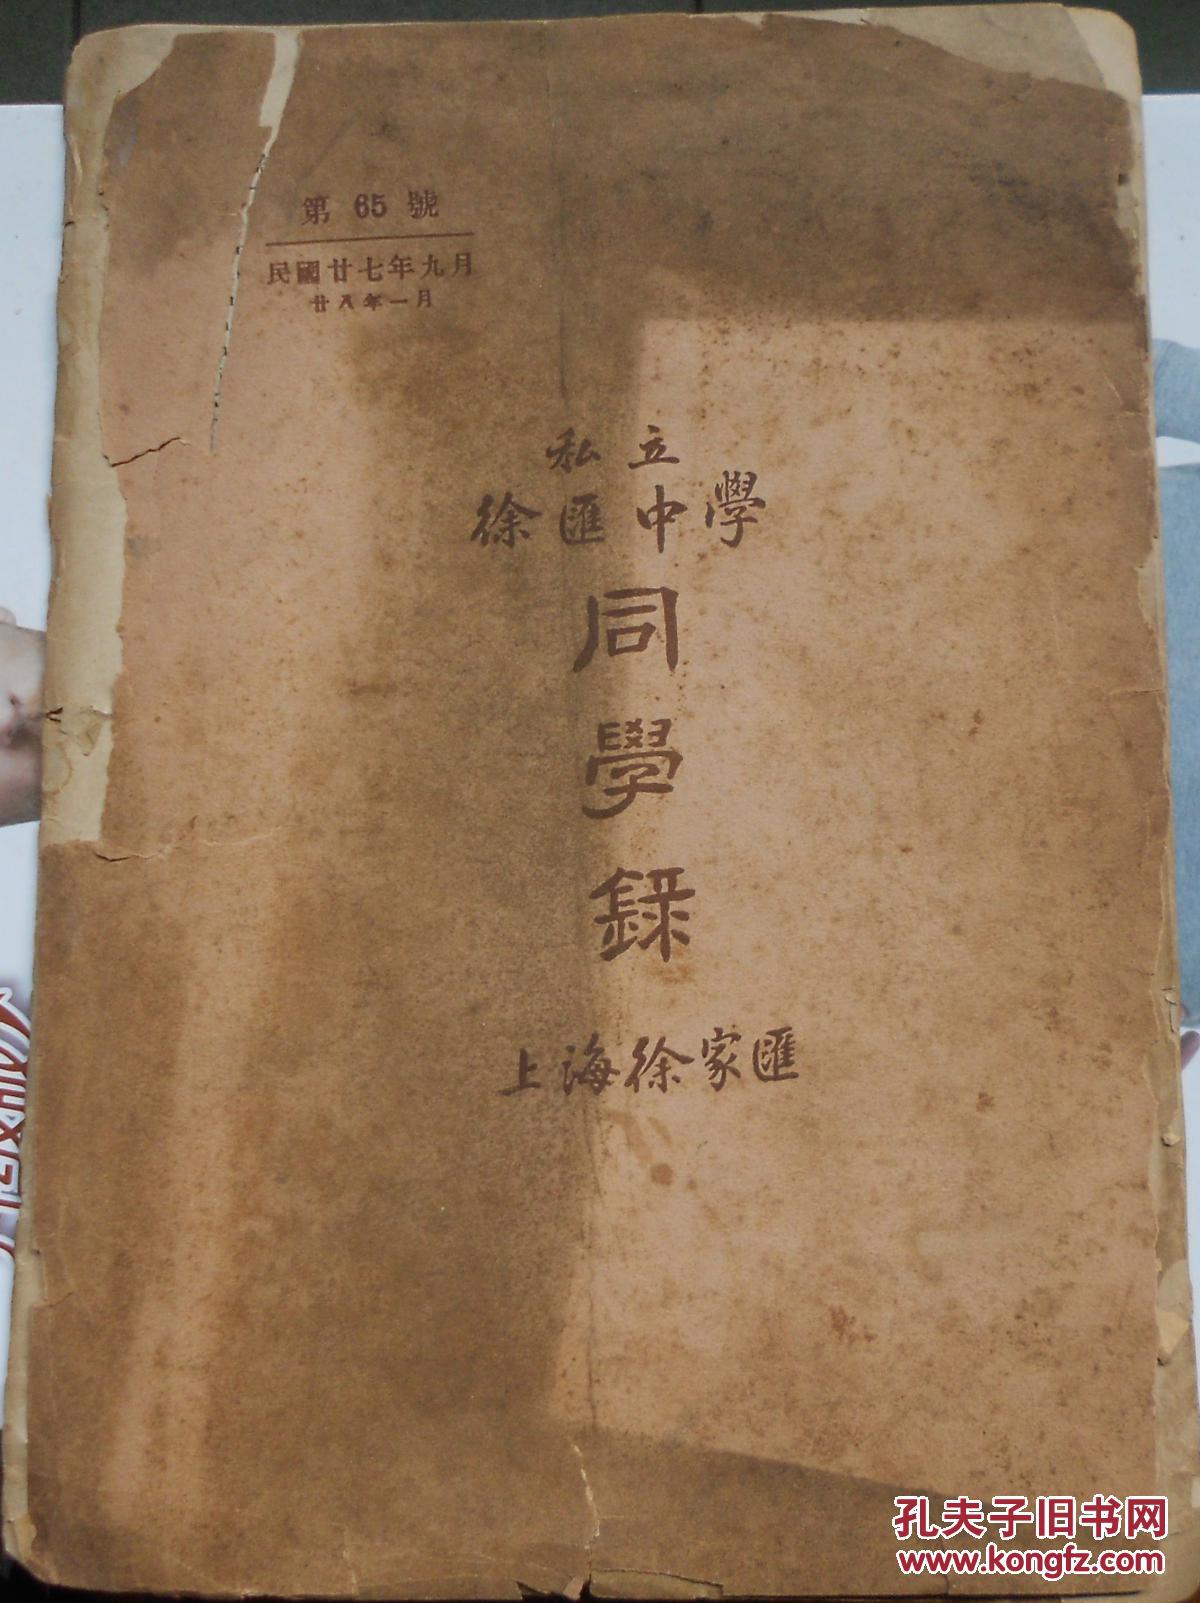 第 65 號
民國廿七年九月
廿八年一月
私立
徐匯中學
同學錄
上海徐家匯
孔夫子旧书网
www.kongfz.com